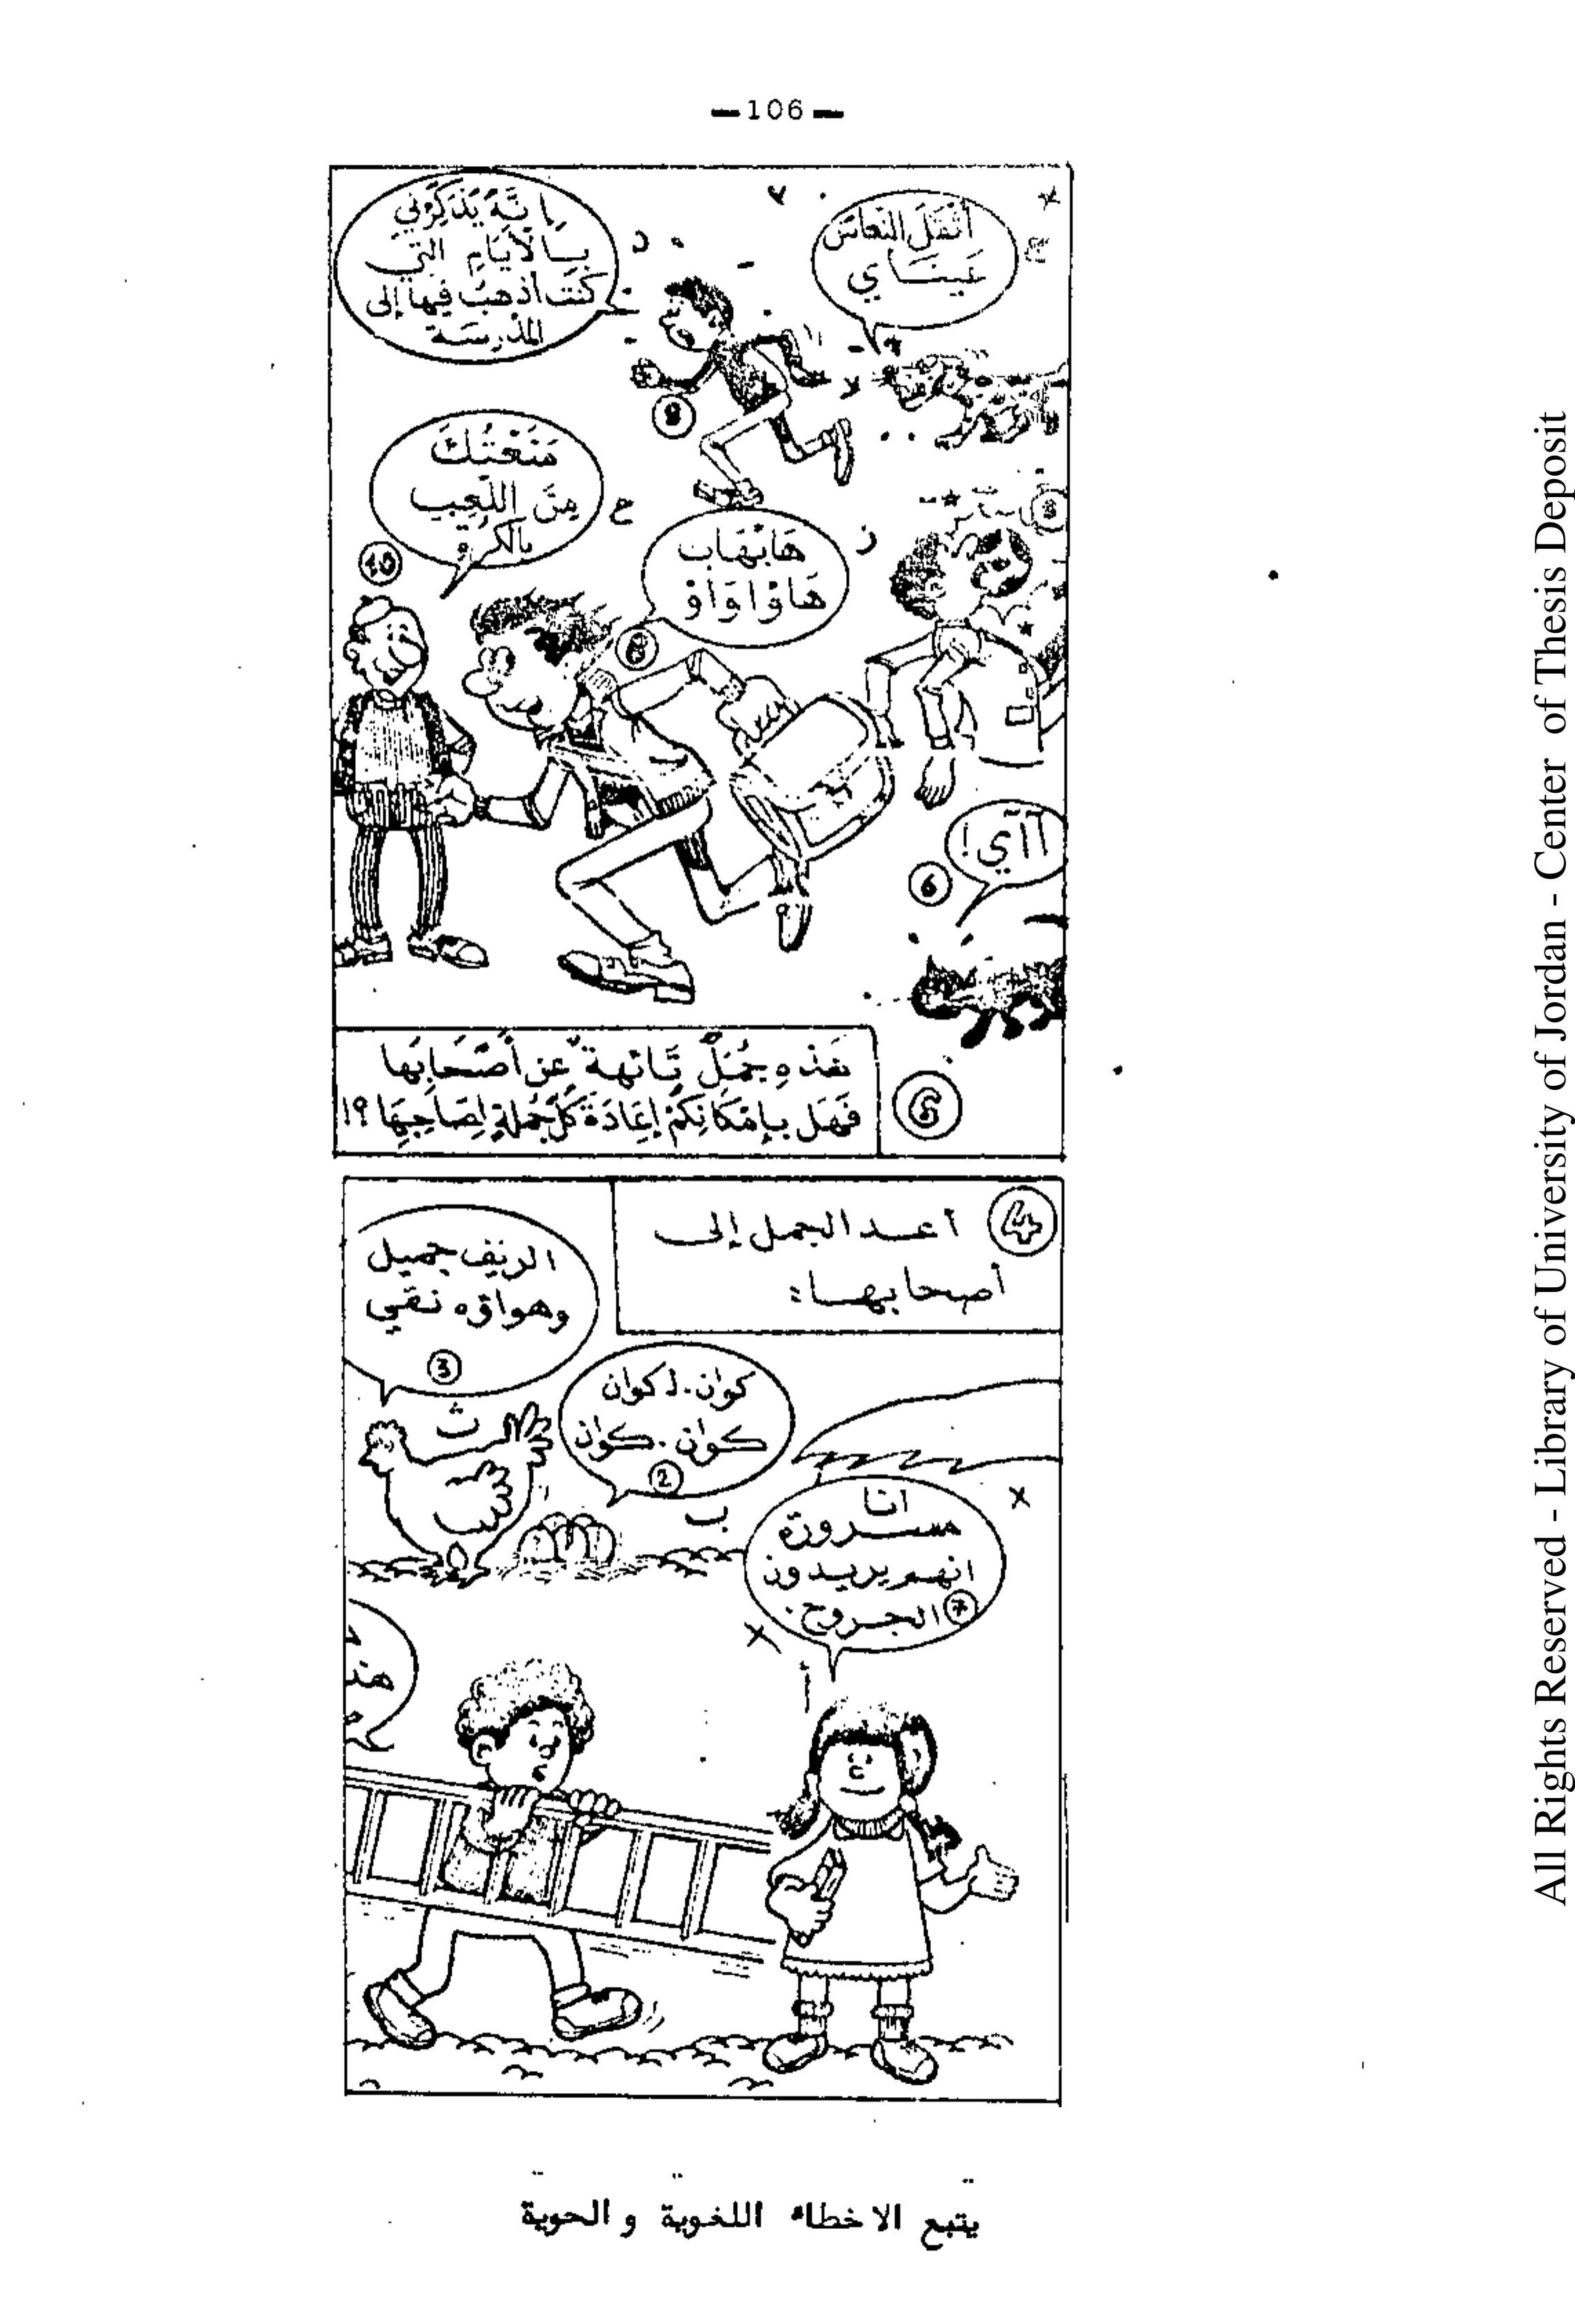 —106—
أثقل النعاس
عيناي
إنَّهُ يُذَكِّرُني
بالأيَّامِ التي
كنتُ أذهبُ فيها إلى
المَدْرسَة
د
مَنَعْتُكَ
مِنَ اللَّعِبِ
بالكرة
ع
10
هَابْهَاب
هَاوْاوَاوْ
ز
8
9
آآي!
6
6
هَذه جُمَلٌ تَائهة عن أَصْحَابِها
فَهَل بِإمْكَانِكُمْ إعَادَةَ كُلِّ جُملةٍ لِصَاحِبِهَا ؟!
4
أعد الجمل إلى
أصحابها:
الريف جميل
وهواؤه نقي
3
ث
كوان.كوان
كوان.كوان
2
ب
انا
مسرورة
انهم يريدون
الجروح.
7
أ
يتبع الاخطاء اللغوية و الحوية
All Rights Reserved - Library of University of Jordan - Center of Thesis Deposit